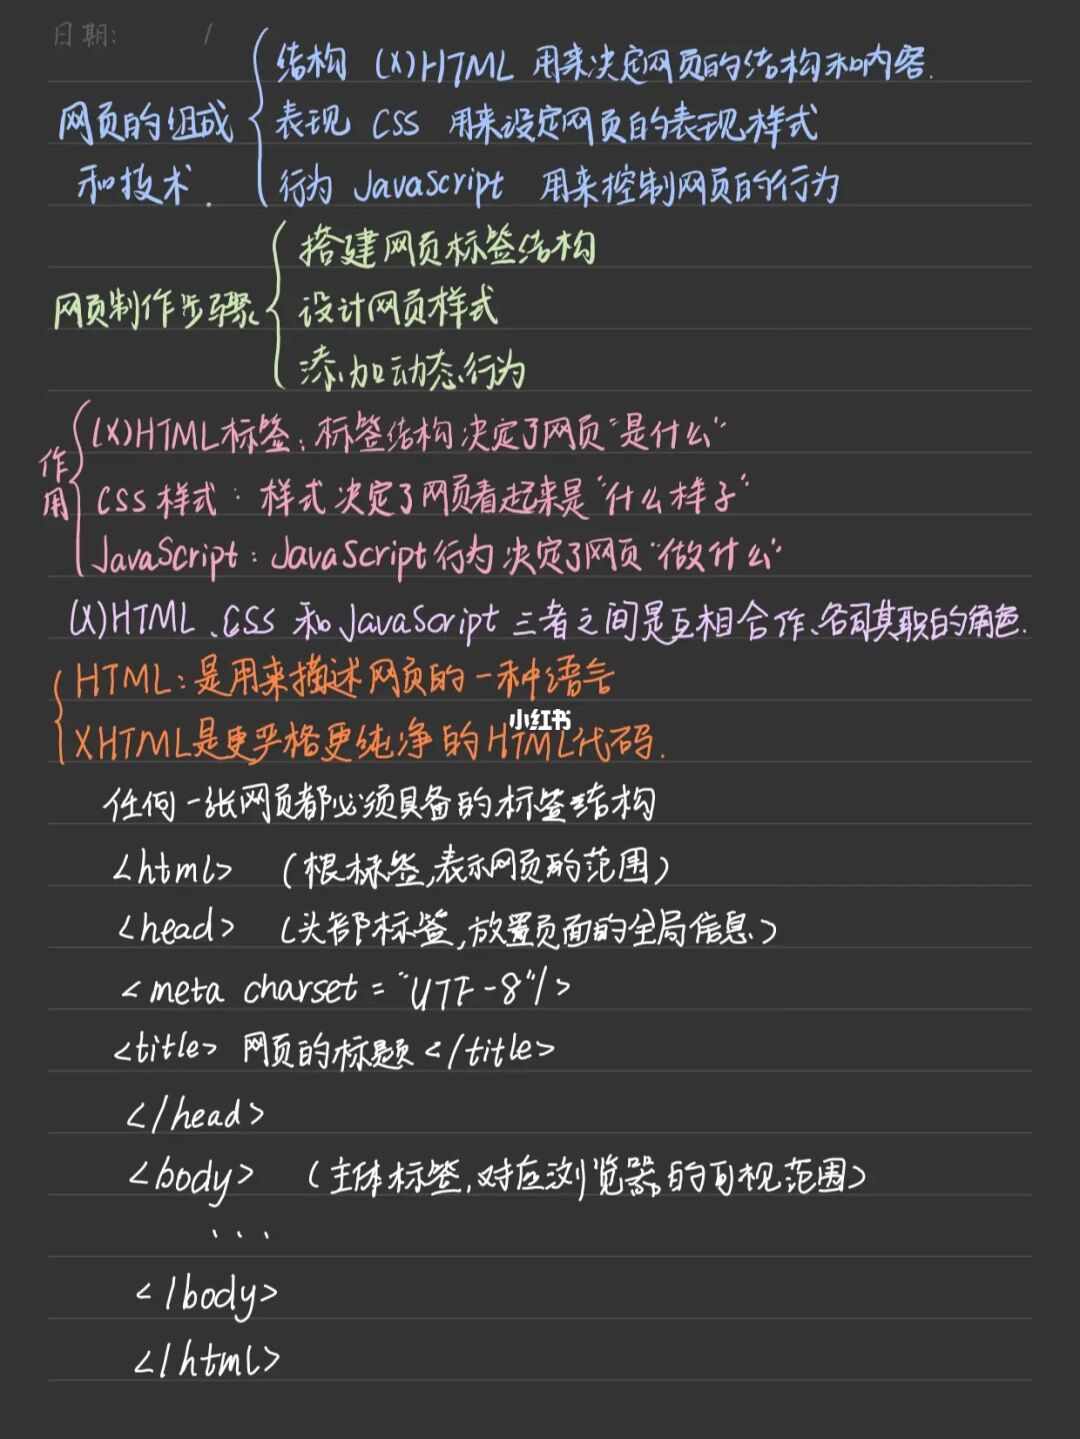 日期: /
结构 (X)HTML 用来决定网页的结构和内容.
网页的组成
表现 CSS 用来设定网页的表现样式
和技术.
行为 JavaScript 用来控制网页的行为
搭建网页标签结构
网页制作步骤
设计网页样式
添加动态行为
作用
(X)HTML标签:标签结构决定了网页"是什么"
CSS样式:样式决定了网页看起来是"什么样子"
JavaScript:JavaScript行为决定了网页"做什么"
(X)HTML、CSS 和 JavaScript 三者之间是互相合作、各司其职的角色.
HTML:是用来描述网页的一种语言
小红书
XHTML是更严格更纯净的HTML代码.
任何一张网页都必须具备的标签结构
<html> (根标签,表示网页的范围)
<head> (头部标签,放置页面的全局信息)
<meta charset="UTF-8"/>
<title> 网页的标题</title>
</head>
<body> (主体标签,对应浏览器的可视范围)
...
</body>
</html>